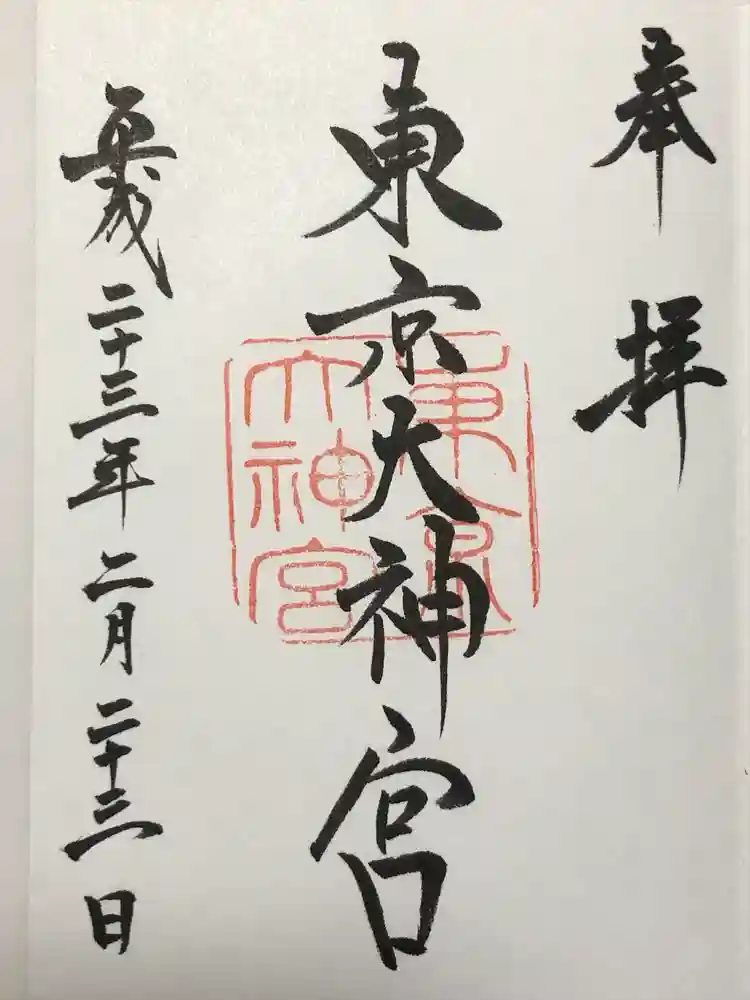 奉拝
東京天神宮
平成二十三年二月二十三日
東京
大神宮